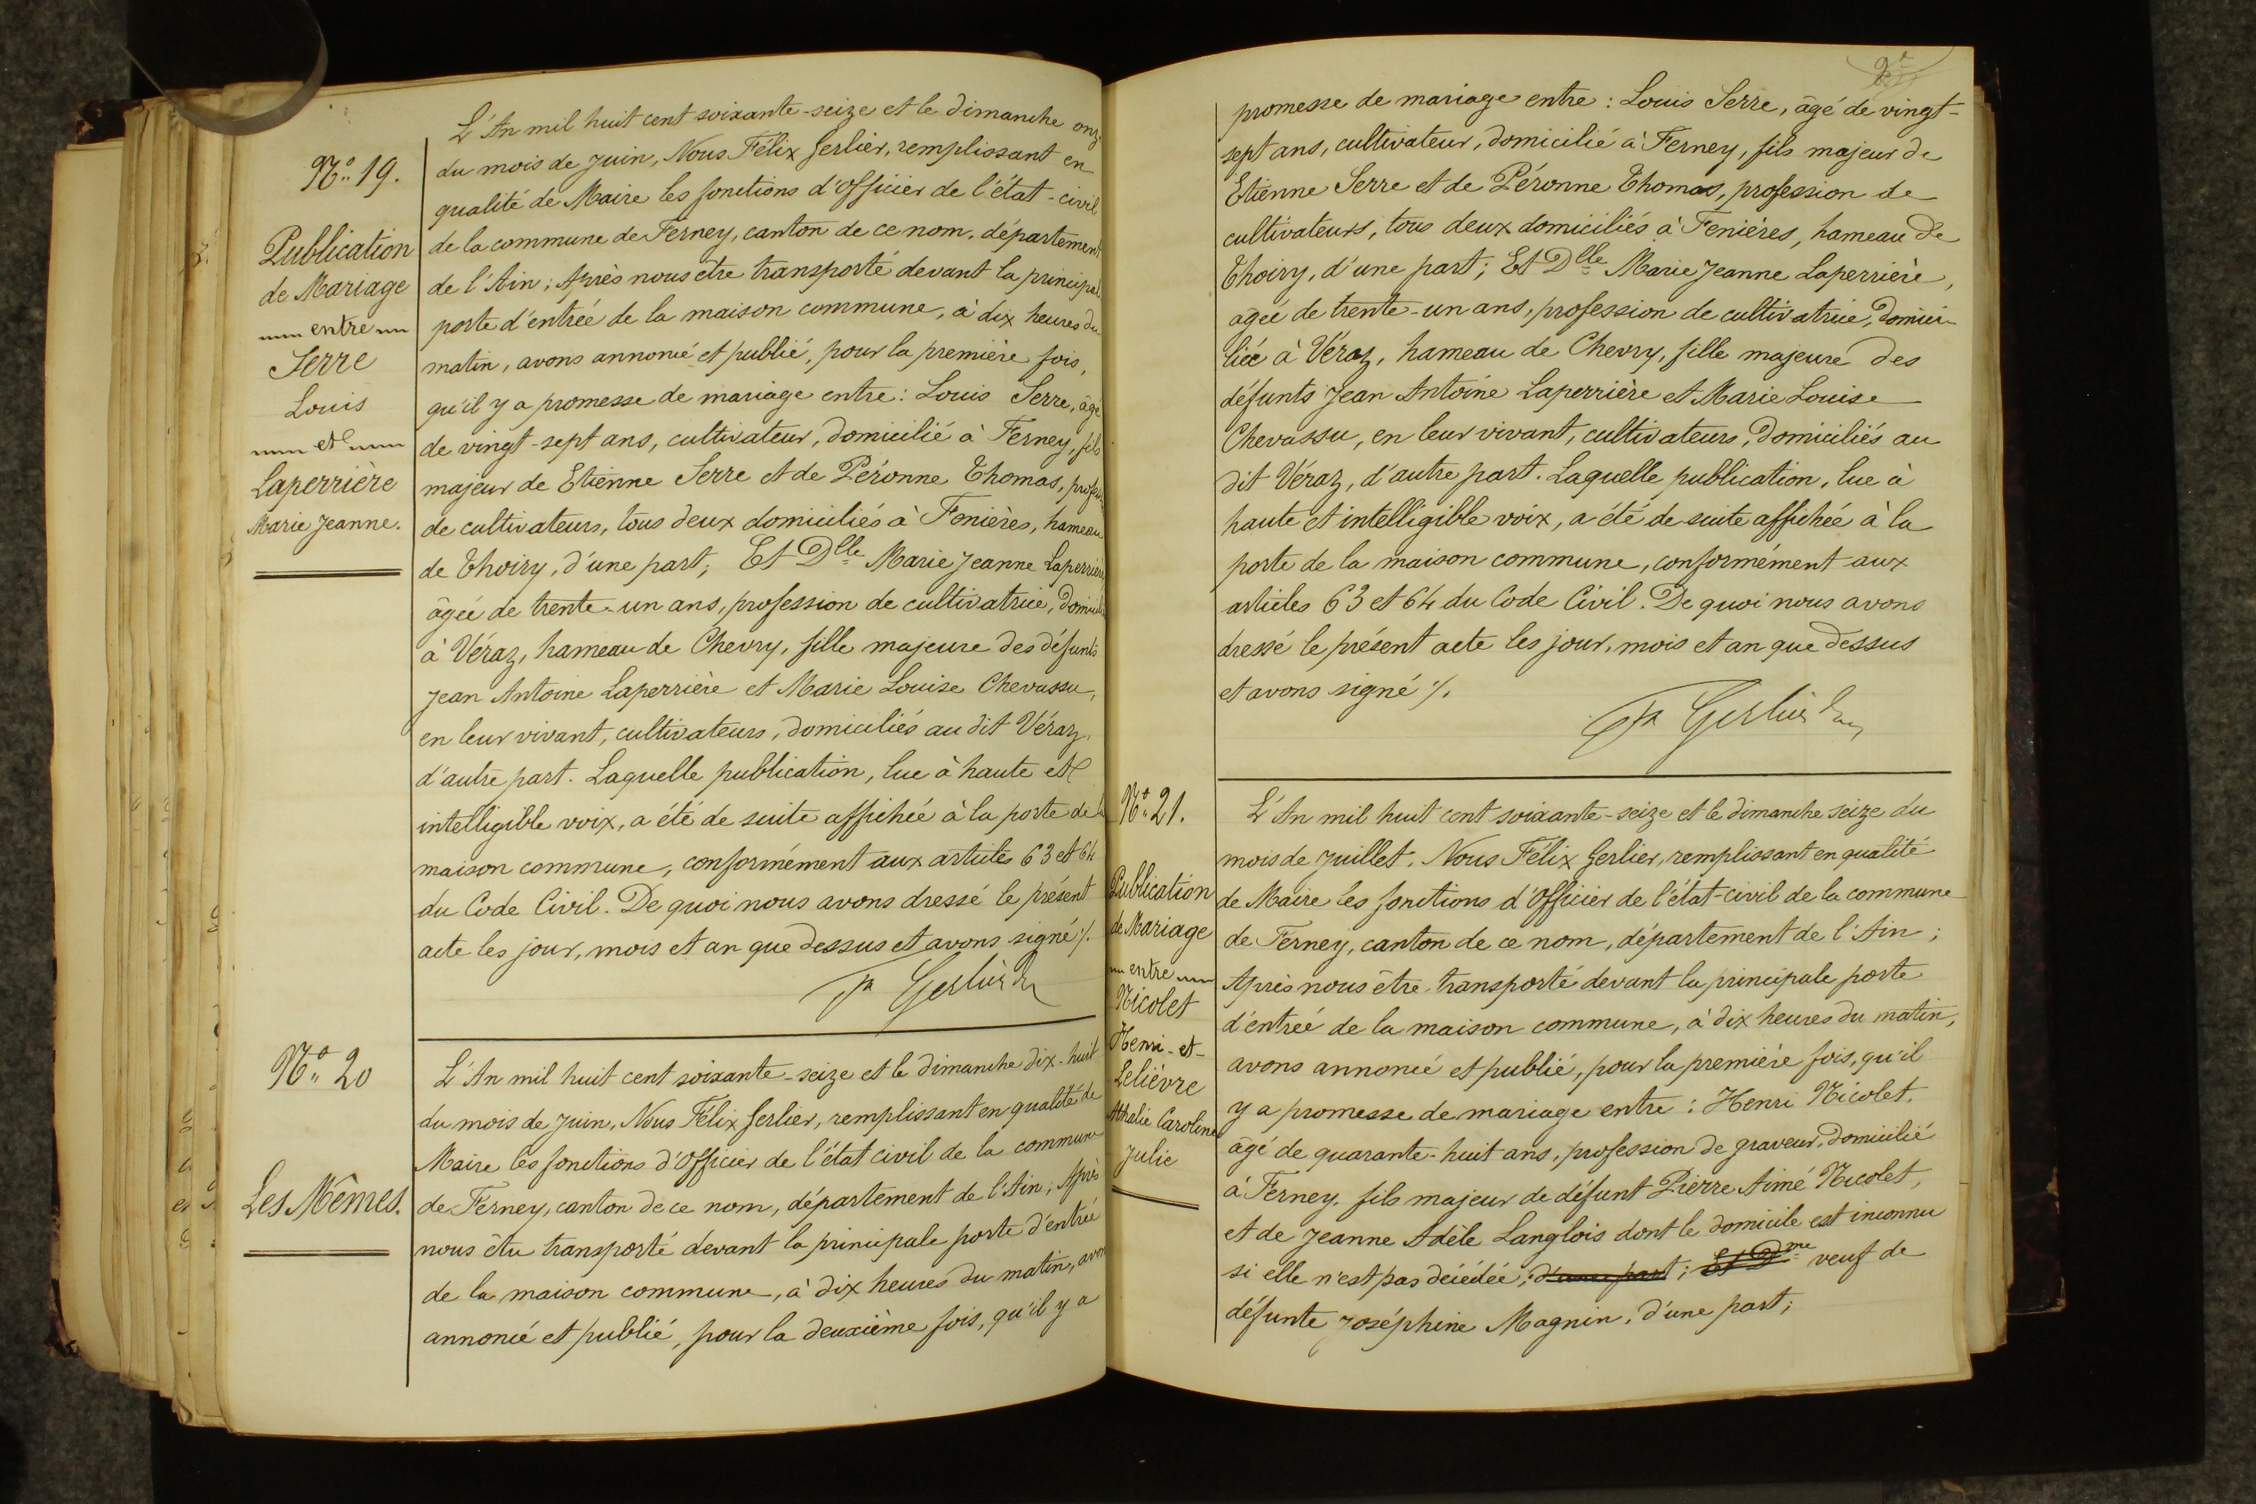 No. 19.
Publication
de Mariage
entre
Serre
Louis
et
Laperrière
Marie Jeanne.
L'An mil huit cent soixante-seize et le dimanche onze
du mois de Juin, Nous Félix Gerlier, remplissant en
qualité de Maire les fonctions d'Officier de l'état-civil
de la commune de Ferney, canton de ce nom, département
de l'Ain; Après nous être transporté devant la principal
porte d'entrée de la maison commune, à dix heures du
matin, avons annoncé et publié, pour la première fois,
qu'il y a promesse de mariage entre: Louis Serre, âgé
de vingt-sept ans, cultivateur, domicilié à Ferney, fils
majeur de Etienne Serre et de Péronne Thomas, profess
de cultivateurs, tous deux domiciliés à Fenières, hameau
de Thoiry, d'une part; Et Dlle Marie Jeanne Laperrière
âgée de trente-un ans, profession de cultivatrice, domicili
à Véraz, hameau de Chevry, fille majeure des défunts
Jean Antoine Laperrière et Marie Louise Chevassu,
en leur vivant, cultivateurs, domiciliés au dit Véraz,
d'autre part. Laquelle publication, lue à haute et
intelligible voix, a été de suite affichée à la porte de la
maison commune, conformément aux articles 63 et 64
du Code Civil. De quoi nous avons dressé le présent
acte les jour, mois et an que dessus et avons signé ./.
Fx Gerlier
No. 20
Les Mêmes.
L'An mil huit cent soixante-seize et le dimanche dix-huit
du mois de Juin, Nous Félix Gerlier, remplissant en qualité de
Maire les fonctions d'Officier de l'état civil de la commune
de Ferney, canton de ce nom, département de l'Ain; Après
nous être transporté devant la principale porte d'entrée
de la maison commune, à dix heures du matin, avons
annoncé et publié, pour la deuxième fois, qu'il y a
promesse de mariage entre: Louis Serre, âgé de vingt-
sept ans, cultivateur, domicilié à Ferney, fils majeur de
Etienne Serre et de Péronne Thomas, profession de
cultivateurs, tous deux domiciliés à Fenières, hameau de
Thoiry, d'une part; Et Dlle Marie Jeanne Laperrière,
âgée de trente-un ans, profession de cultivatrice, domici-
liée à Véraz, hameau de Chevry, fille majeure des
défunts Jean Antoine Laperrière et Marie Louise
Chevassu, en leur vivant, cultivateurs, domiciliés au
dit Véraz, d'autre part. Laquelle publication, lue à
haute et intelligible voix, a été de suite affichée à la
porte de la maison commune, conformément aux
articles 63 et 64 du Code Civil. De quoi nous avons
dressé le présent acte les jour, mois et an que dessus
et avons signé ./.
Fx Gerlier
No. 21.
Publication
de Mariage
entre
Nicolet
Henri - et -
Lelièvre
Athalie Caroline
Julie
L'An mil huit cent soixante-seize et le dimanche seize du
mois de Juillet, Nous Félix Gerlier, remplissant en qualité
de Maire les fonctions d'Officier de l'état-civil de la commune
de Ferney, canton de ce nom, département de l'Ain;
Après nous être transporté devant la principale porte
d'entrée de la maison commune, à dix heures du matin,
avons annoncé et publié, pour la première fois, qu'il
y a promesse de mariage entre: Henri Nicolet,
âgé de quarante-huit ans, profession de graveur, domicilié
à Ferney, fils majeur de défunt Pierre Aimé Nicolet,
et de Jeanne Adèle Langlois dont le domicile est inconnu
si elle n'est pas décédée; d'une part; Et Dme veuf de
défunte Joséphine Magnin, d'une part;